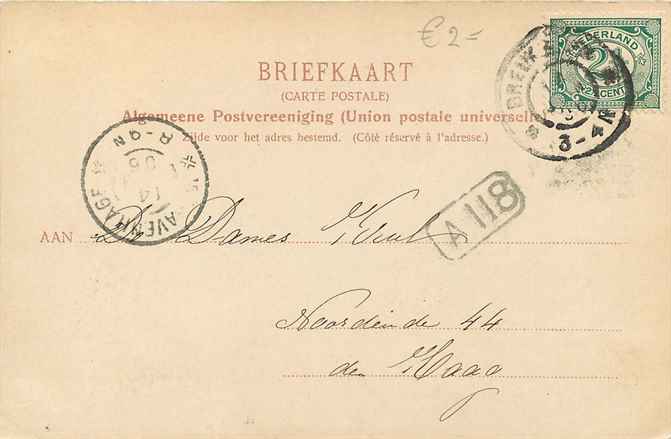 € 2=
NEDERLAND
2½
CENT
BREUK
3-4
BRIEFKAART
(CARTE POSTALE)
Algemeene Postvereeniging (Union postale universelle)
Zijde voor het adres bestemd. (Côté réservé à l'adresse.)
'S GRAVENHAGE
14
06
8-9N
A 118
AAN De Dames Keul
Noordeinde 44
den Haag